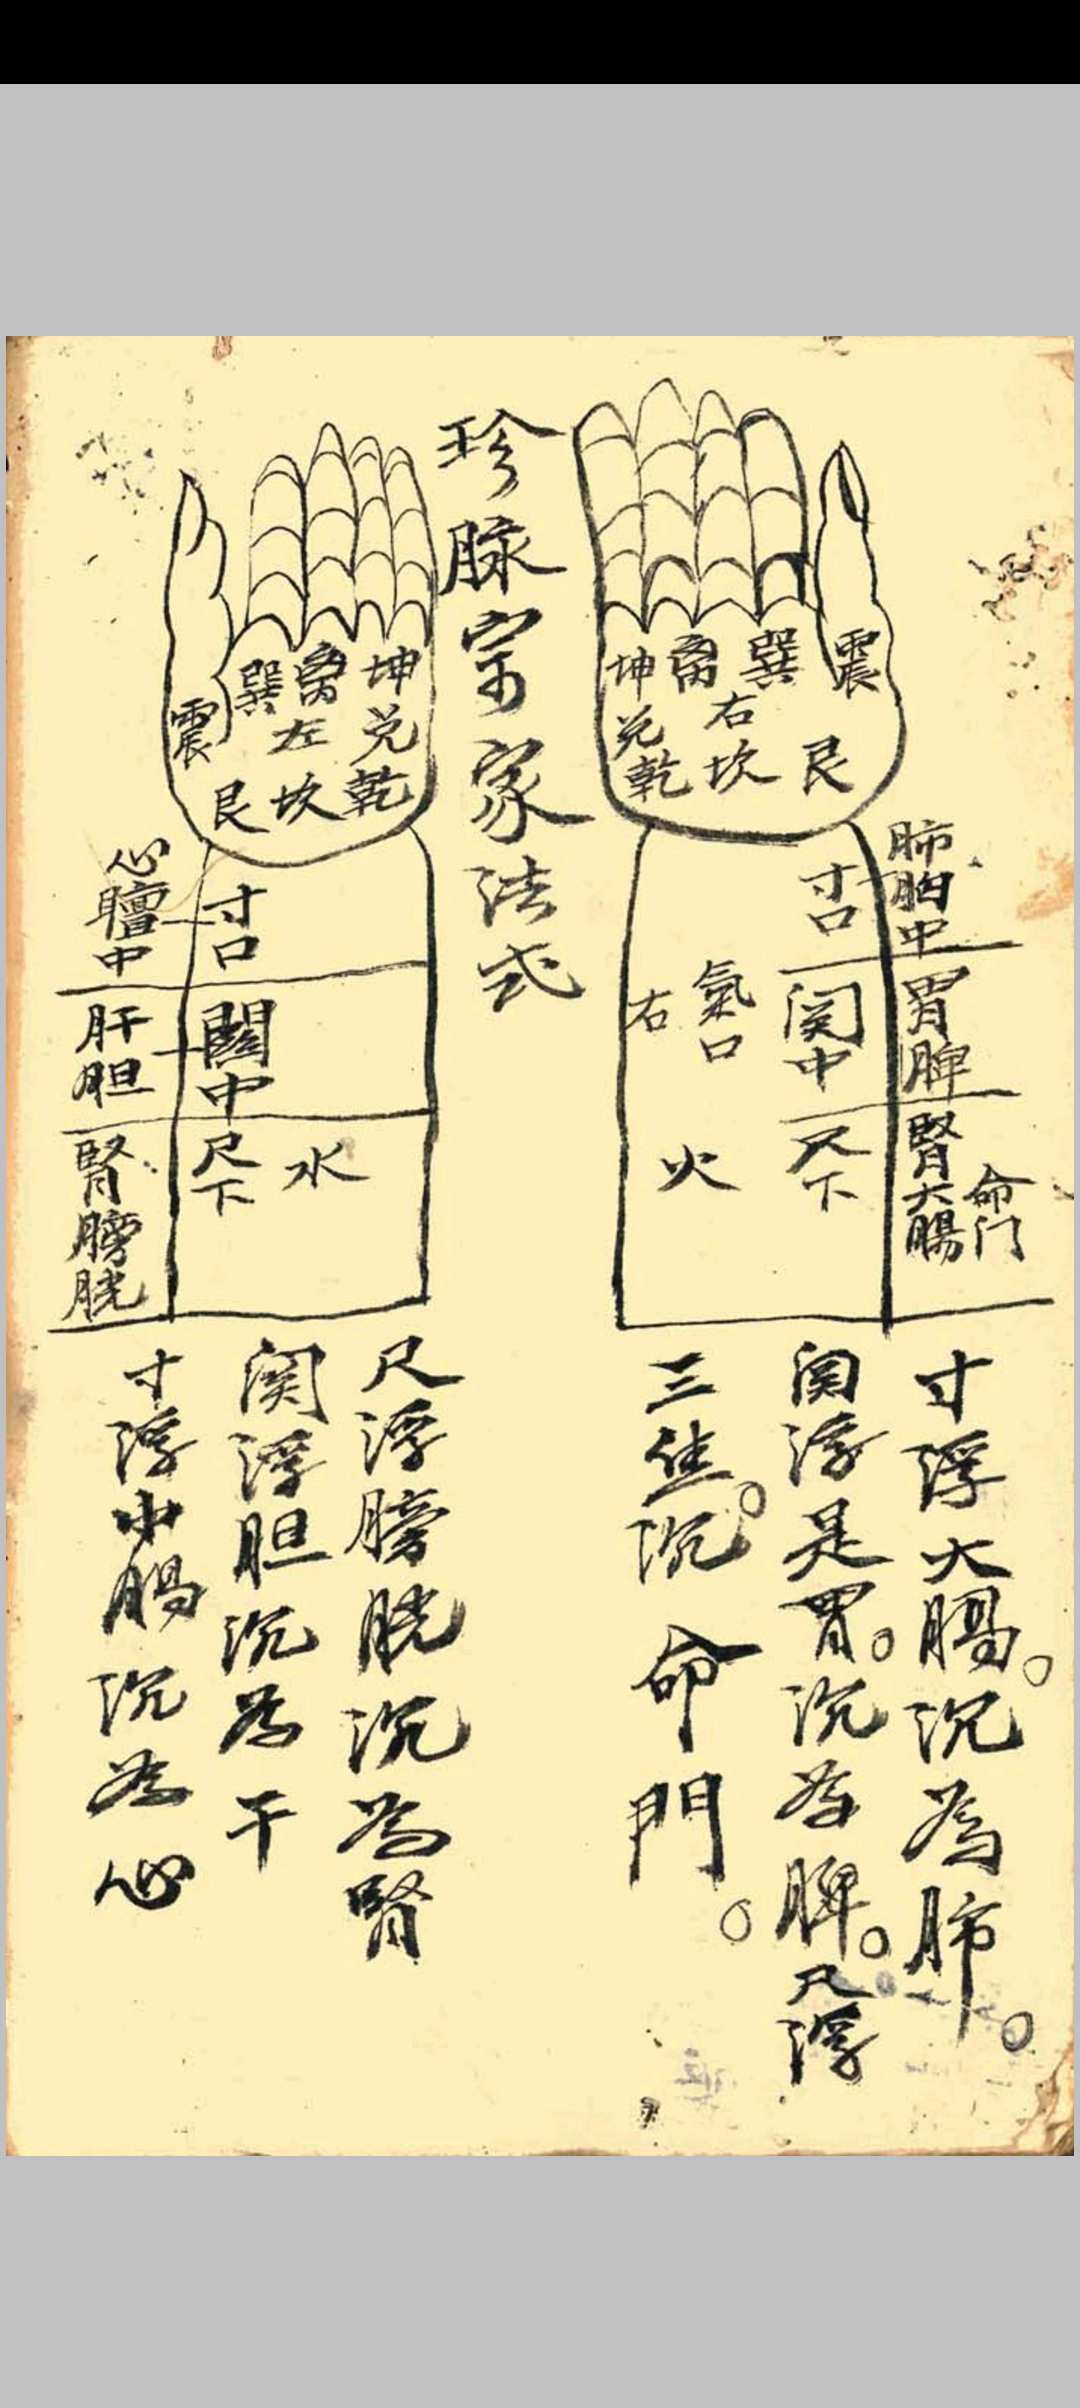 珍脉宗家法式
震
巽
离
坤
兑
乾
右
坎
艮
寸口
関中
尺下
氣口
右
火
肺胸中
胃脾
腎大腸
命门
震
巽
离
坤
兑
乾
左
坎
艮
寸口
關中
尺下
水
心膻中
肝胆
腎膀胱
寸浮大腸。沉為肺。
関浮是胃。沉為脾。尺浮
三焦。沉命門。
尺浮膀胱沉為腎
関浮胆沉為干
寸浮小腸沉為心